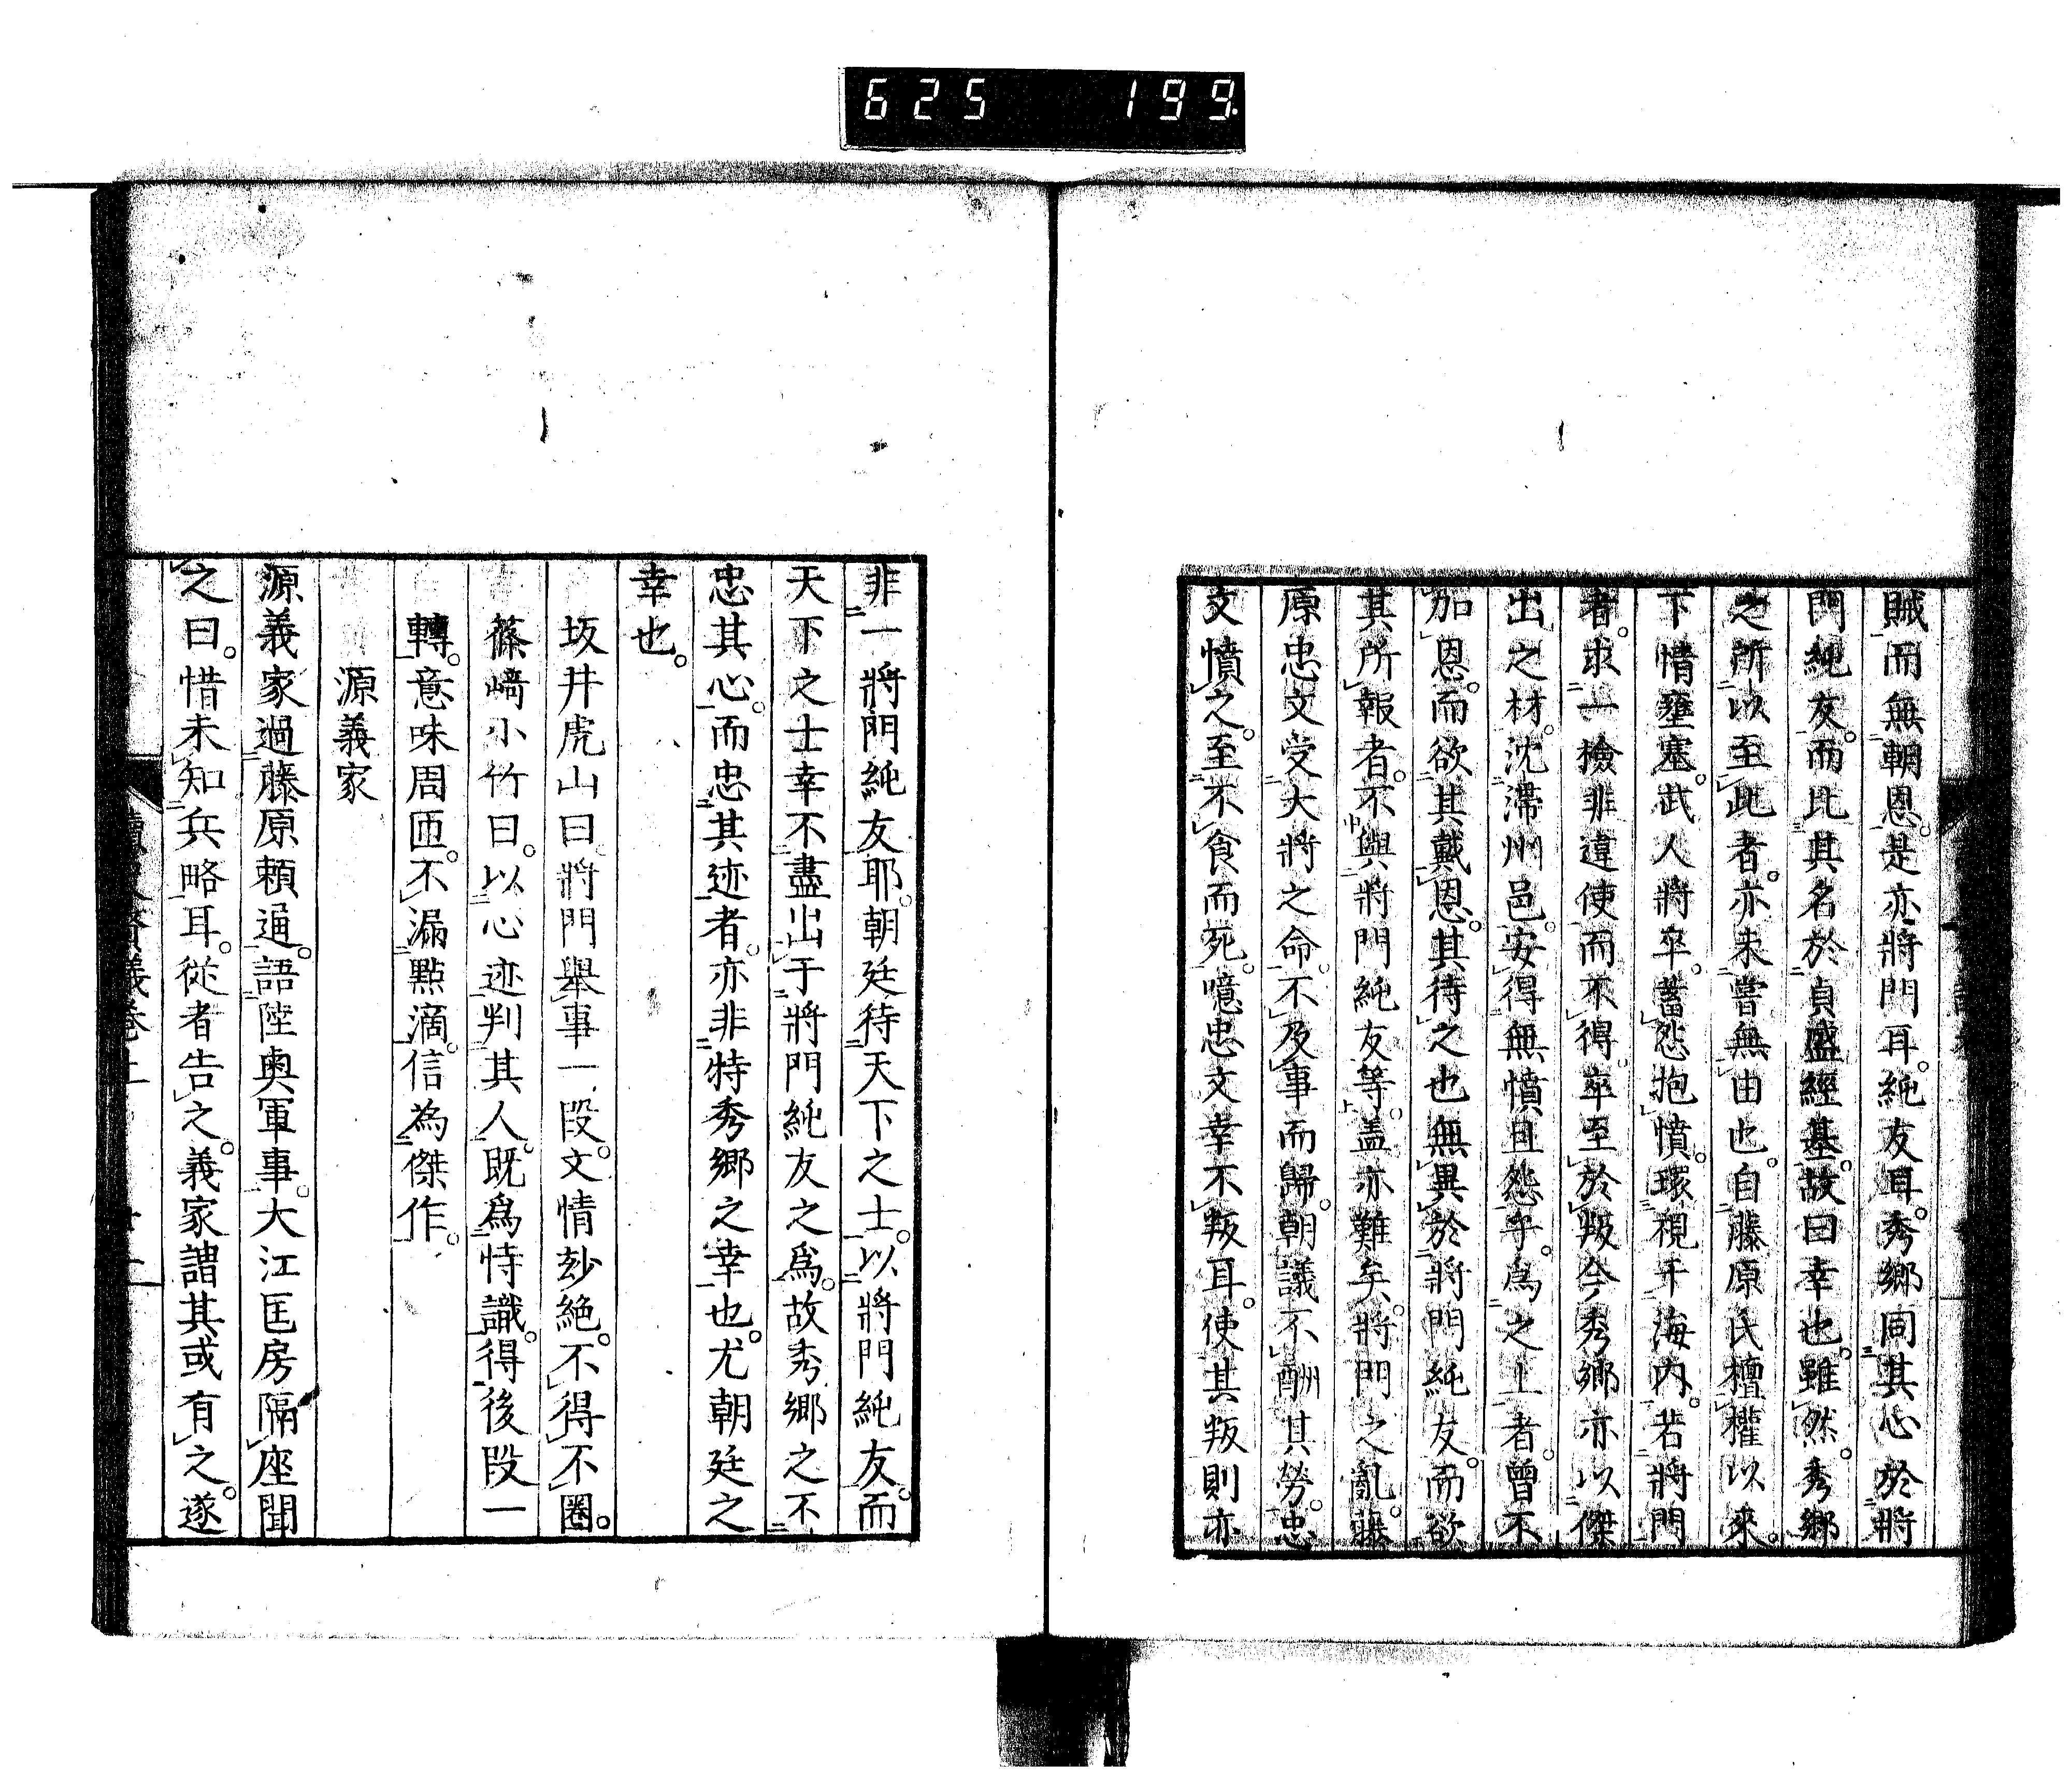 625 199
賊而無朝恩。是亦將門耳。純友耳。秀郷同其心於將
門純友。而比其名於貞盛經基。故曰幸也。雖然。秀郷
之所以至此者。亦未嘗無由也。自藤原氏擅權以來。
下情壅塞。武人將卒。蓄怨抱憤。環視于海内。若將門
者。求一檢非違使而不得。卒至於叛。今秀郷亦以傑
出之材。沈滯州邑。安得無憤且怨乎。爲之上者。曾不
加恩。而欲其戴恩。其待之也無異於將門純友。而欲
其所報者。不與將門純友等。盖亦難矣。將門之亂。藤
原忠文受大將之命。不及事而歸。朝議不酬其勞。忠
文憤之。至不食而死。噫忠文幸不叛耳。使其叛則亦
非一將門純友耶。朝廷待天下之士。以將門純友。而
天下之士幸不盡出于將門純友之爲。故秀郷之不
忠其心。而忠其迹者。亦非特秀郷之幸也。尤朝廷之
幸也。
坂井虎山曰。將門舉事一段。文情玅絶。不得不圈。
篠﨑小竹曰。以心迹判其人。既爲恃識。得後段一
轉。意味周匝。不漏點滴。信為傑作。
源義家
源義家過藤原賴通。語陸奥軍事。大江匡房隔座聞
之曰。惜未知兵略耳。從者告之。義家謂其或有之。遂